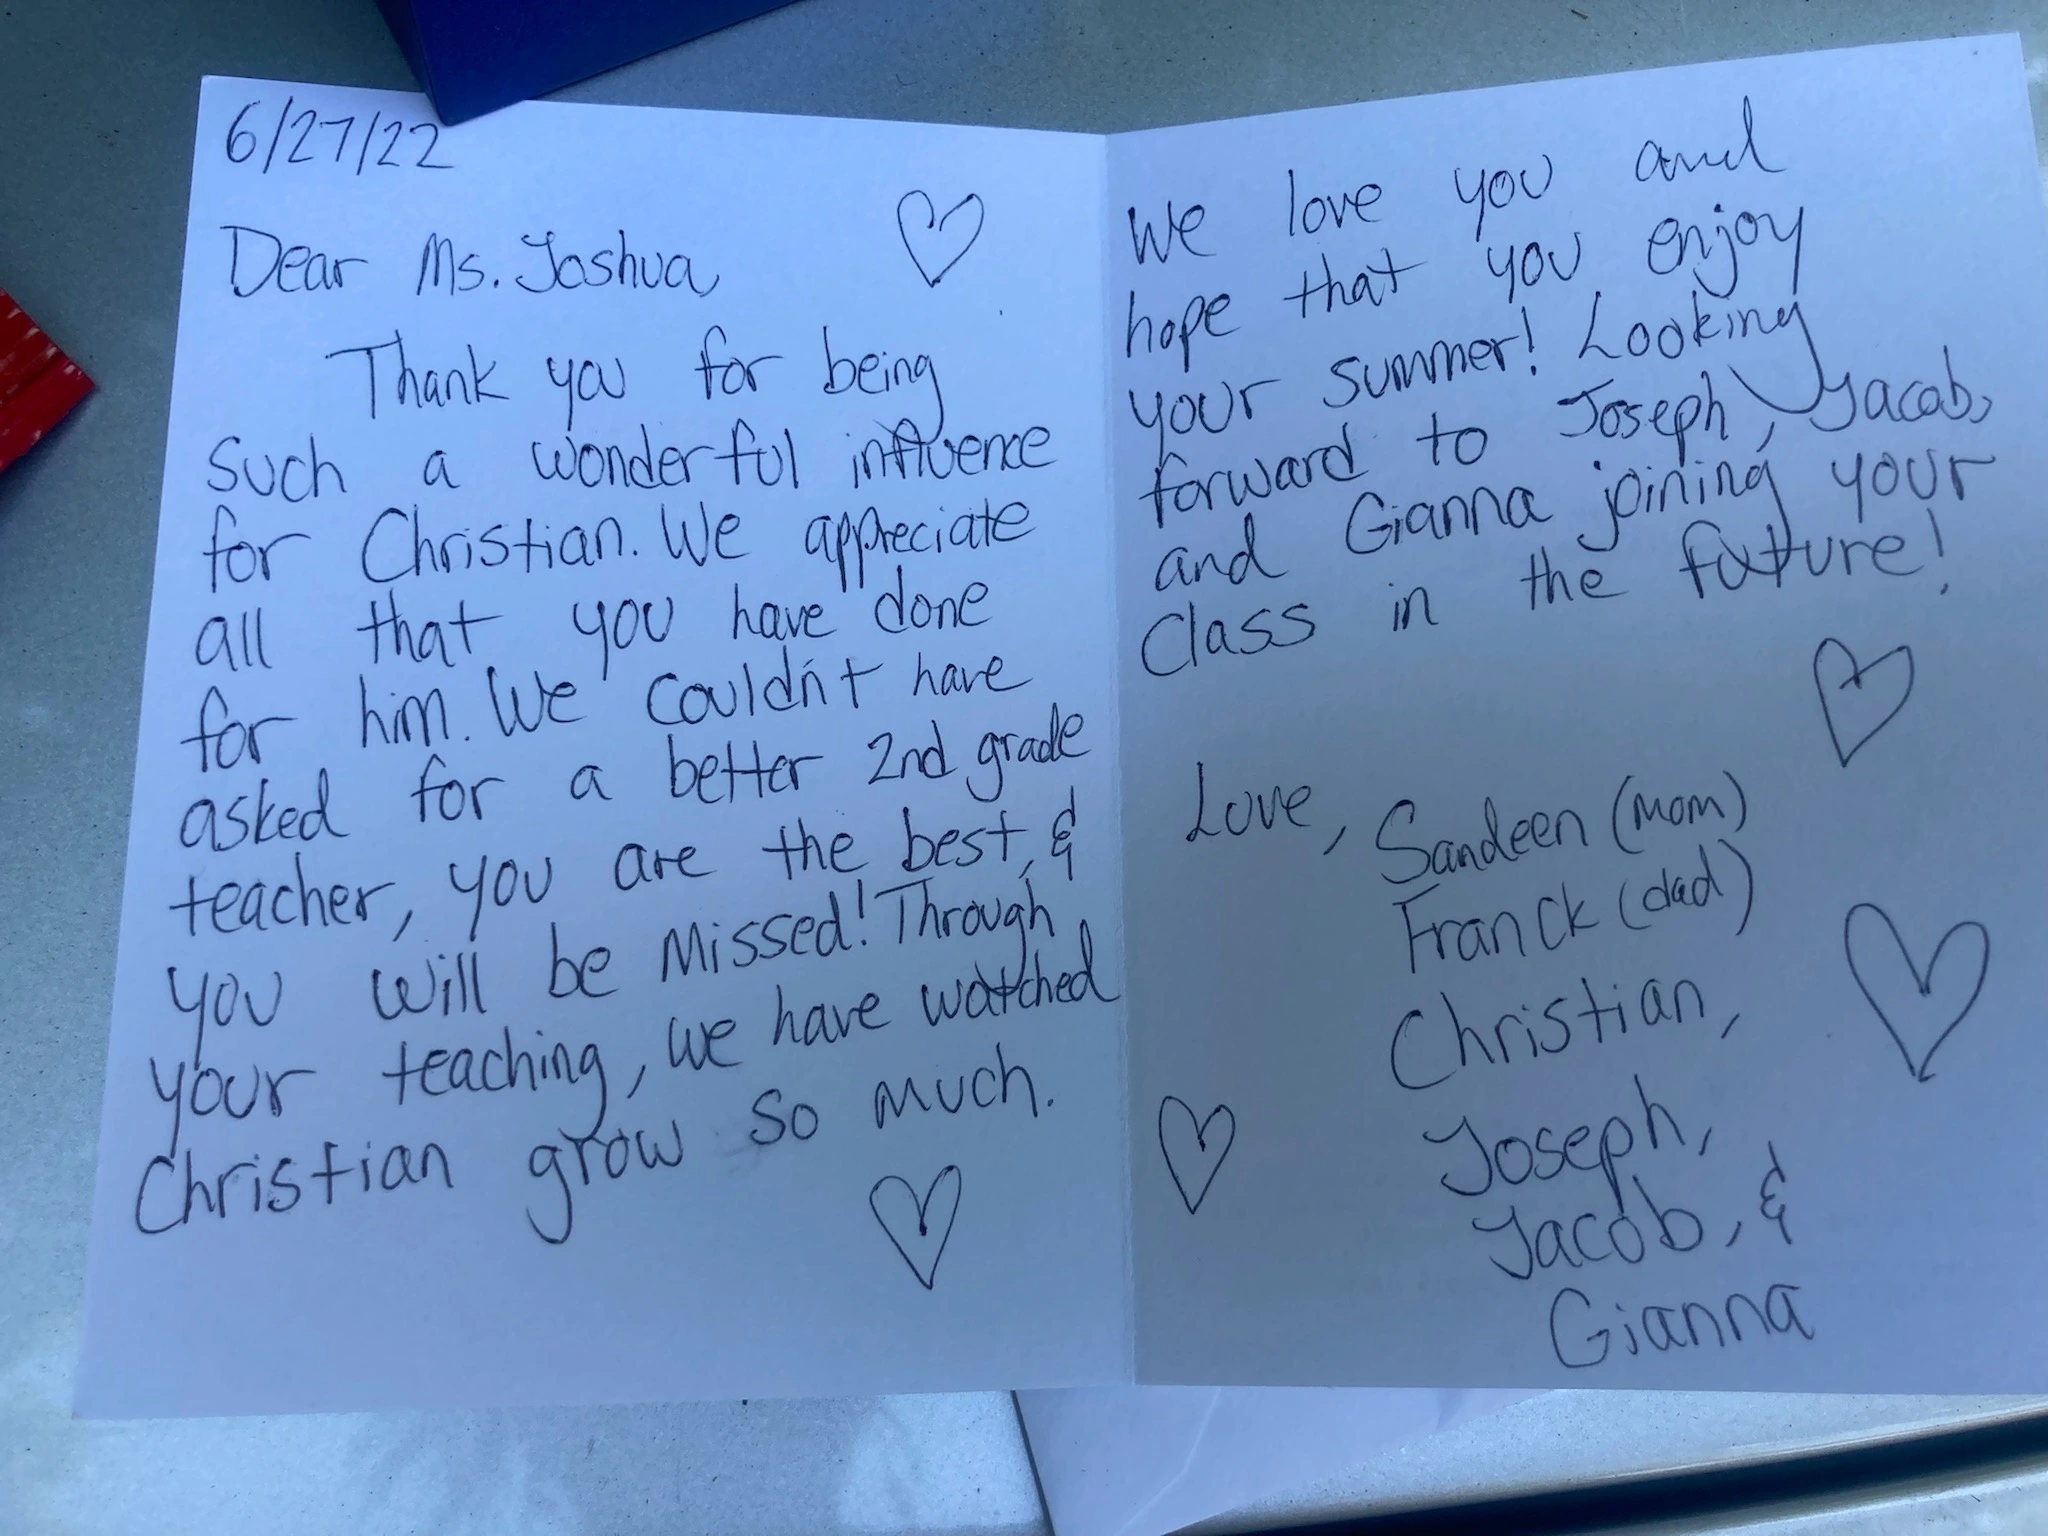 6/27/22
Dear Ms. Joshua,
Thank you for being
such a wonderful influence
for Christian. We appreciate
all that you have done
for him. We couldn't have
asked for a better 2nd grade
teacher, you are the best, &
you will be missed! Through
your teaching, we have watched
Christian grow so much.
We love you and
hope that you enjoy
your summer! Looking
forward to Joseph, Jacob,
and Gianna joining your
class in the future!
Love, Sandeen (mom)
Franck (dad)
Christian,
Joseph,
Jacob, &
Gianna